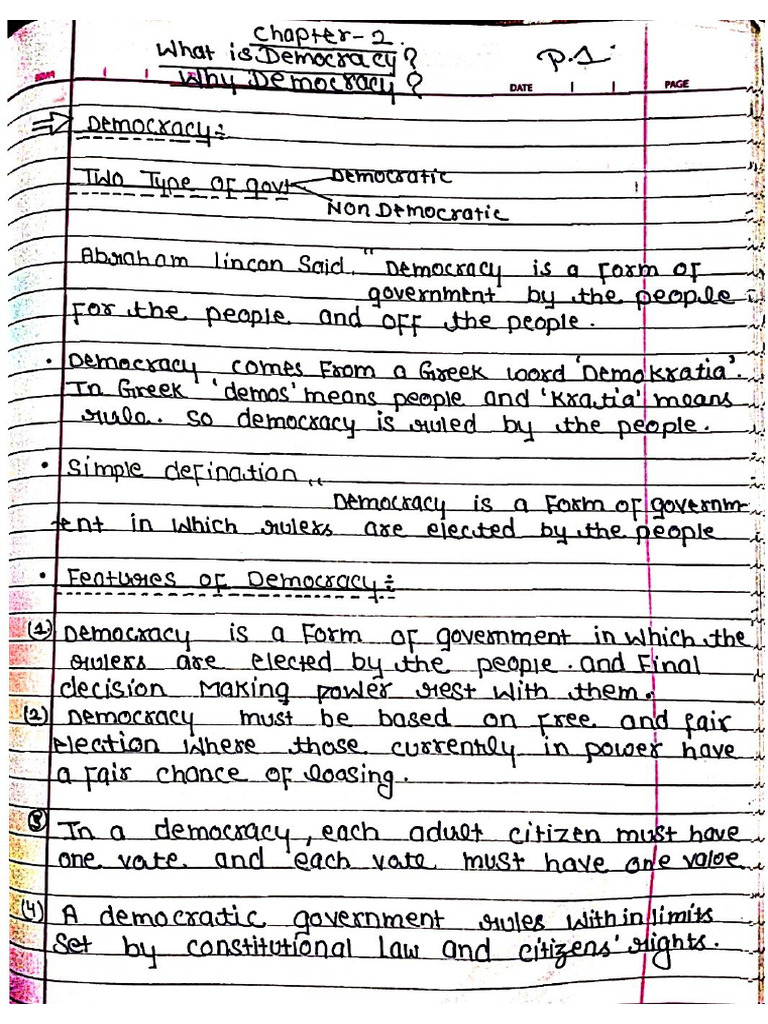 Chapter-2.
What is Democracy?
P.1.
Why Democracy?
DATE
PAGE
⇒ Democracy:-
Two Type of govt
Democratic
Non Democratic
Abraham Lincon Said. "Democracy is a form of
government by the people
For the people and off the people.
• Democracy comes from a Greek word 'Demokratia'.
In Greek 'demos' means people and 'Kratia' means
rula. So democracy is ruled by the people.
• Simple defination "
Democracy is a Form of governm-
ent in which rulers are elected by the people
• Features of Democracy:-
(1) Democracy is a Form of government in which the
rulers are elected by the people. and Final
decision Making power rest with them.
(2) Democracy must be based on free and fair
election where those currently in power have
a fair chance of loasing.
(3) In a democracy, each adult citizen must have
one vate and each vate must have one value
(4) A democratic government rules within limits
Set by constitutional law and citizens' rights.